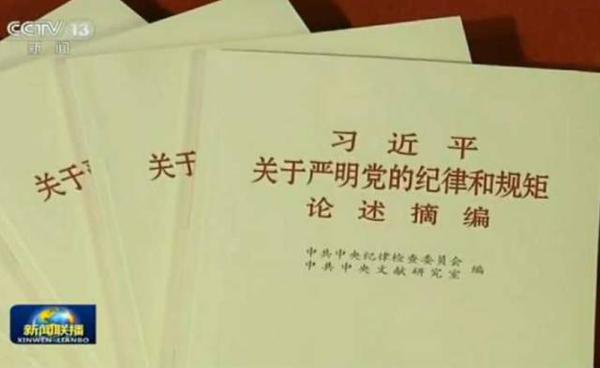 CCTV 13
新闻
习近平
关于严明党的纪律和规矩
论述摘编
中共中央纪律检查委员会
中共中央文献研究室
编
关于
关于严
新闻联播
XINWEN-LIANBO